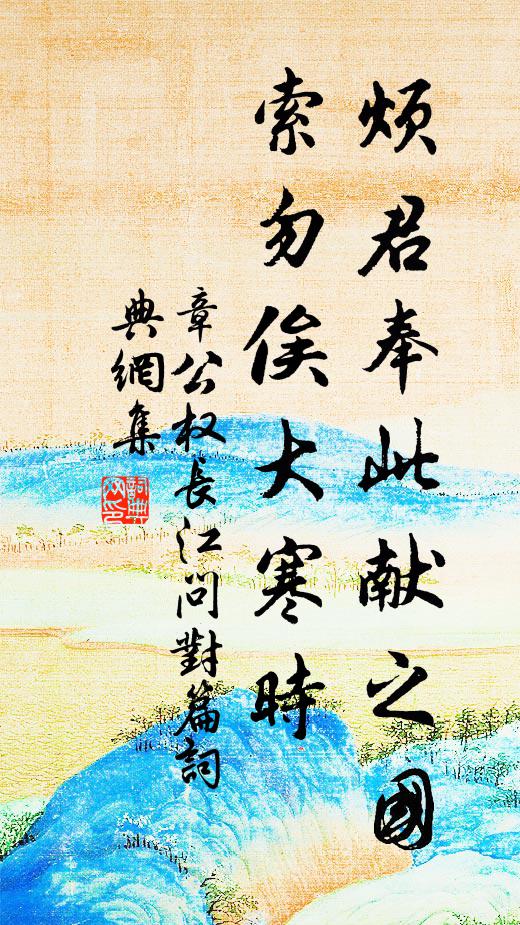 烦君奉此献之國
索勿俟大寒時
章公权長江问對篇詞
典網集
詞典